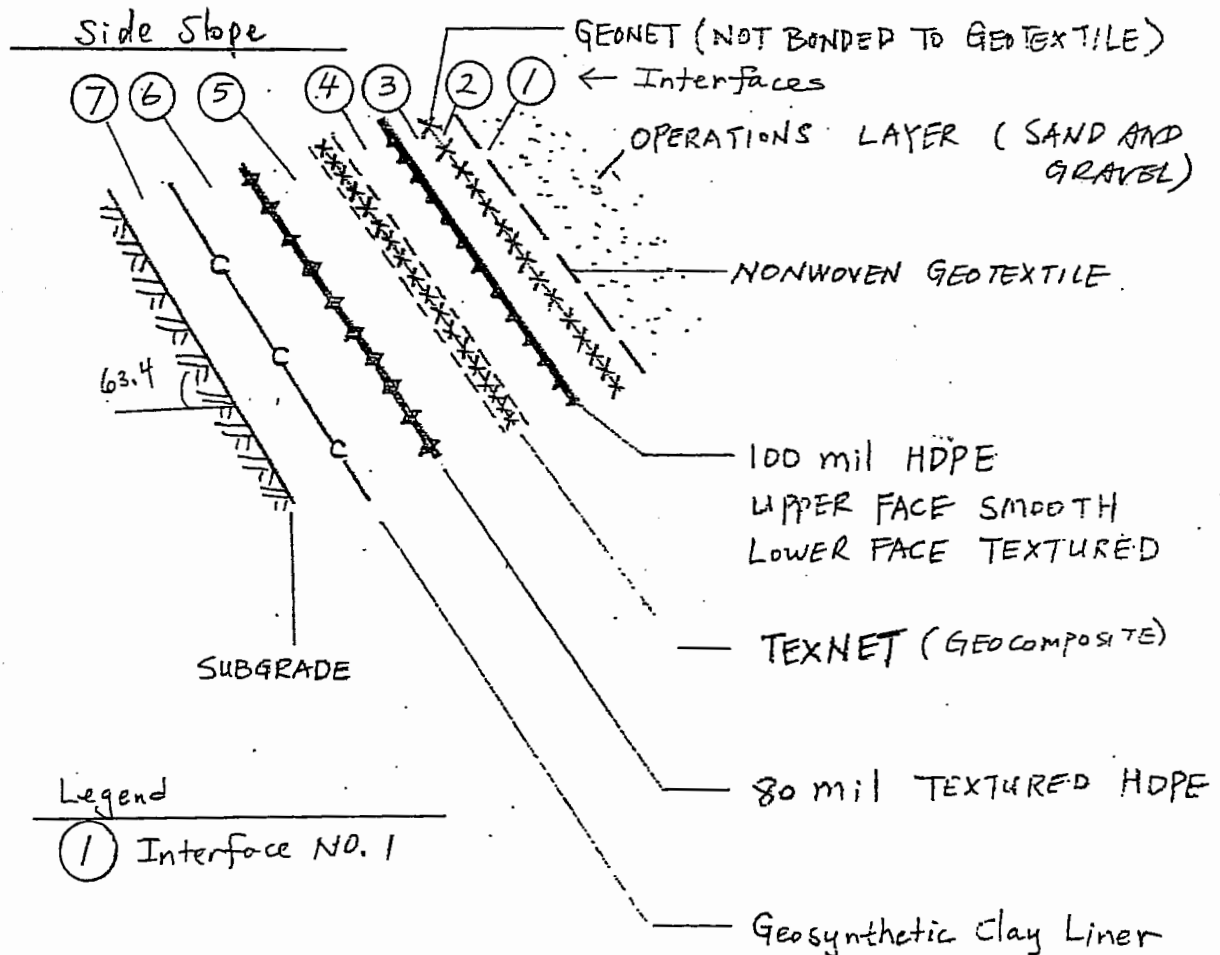 Side Slope
GEONET (NOT BONDED TO GEOTEXTILE)
7 6 5 4 3 2 1 ← Interfaces
OPERATIONS LAYER (SAND AND
GRAVEL)
NONWOVEN GEOTEXTILE
63.4
100 mil HDPE
UPPER FACE SMOOTH
LOWER FACE TEXTURED
TEXNET (GEOCOMPOSITE)
SUBGRADE
80 mil TEXTURED HDPE
Legend
1 Interface NO. 1
Geosynthetic Clay Liner